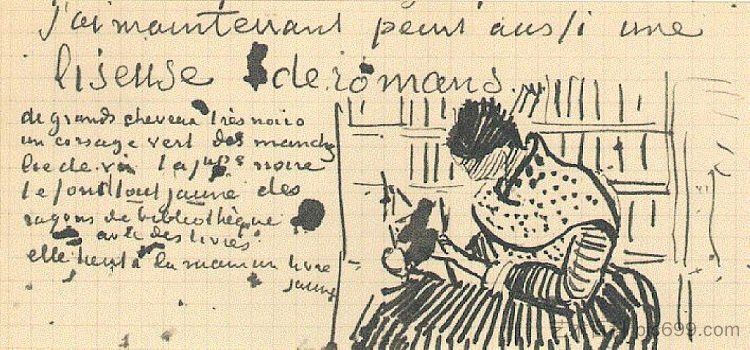 j'ai maintenant peint aussi une
liseuse de romans.
de grands cheveux très noirs
un corsage vert des manches
lie de vin la jupe noire
le fond tout jaune des
rayons de bibliothèque
avec des livres
elle tient à la main un livre
jaune
pic699.com